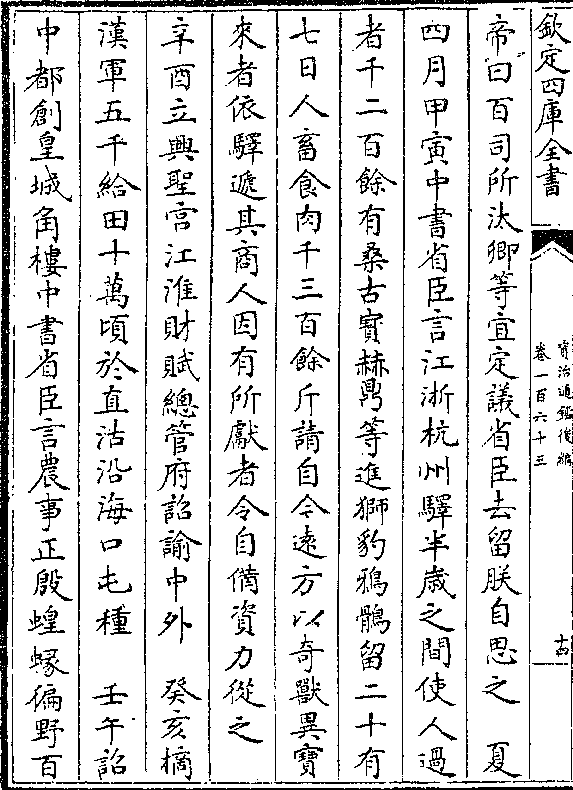 欽定四庫全書
資治通鑑後編
卷一百六十三
十四
帝曰百司所汰卿等宜定議省臣去留朕自思之　夏
四月甲寅中書省臣言江浙杭州驛半歲之間使人過
者千二百餘有桑古寳赫鼎等進獅豹鴉鶻留二十有
七日人畜食肉千三百餘斤請自今逺方以奇獸異寳
來者依驛遞其商人因有所獻者令自備資力從之
辛酉立興聖宫江淮財賦總管府詔諭中外　癸亥摘
漢軍五千給田十萬頃於直沽沿海口屯種　壬午詔
中都創皇城角樓中書省臣言農事正殷蝗蝝徧野百